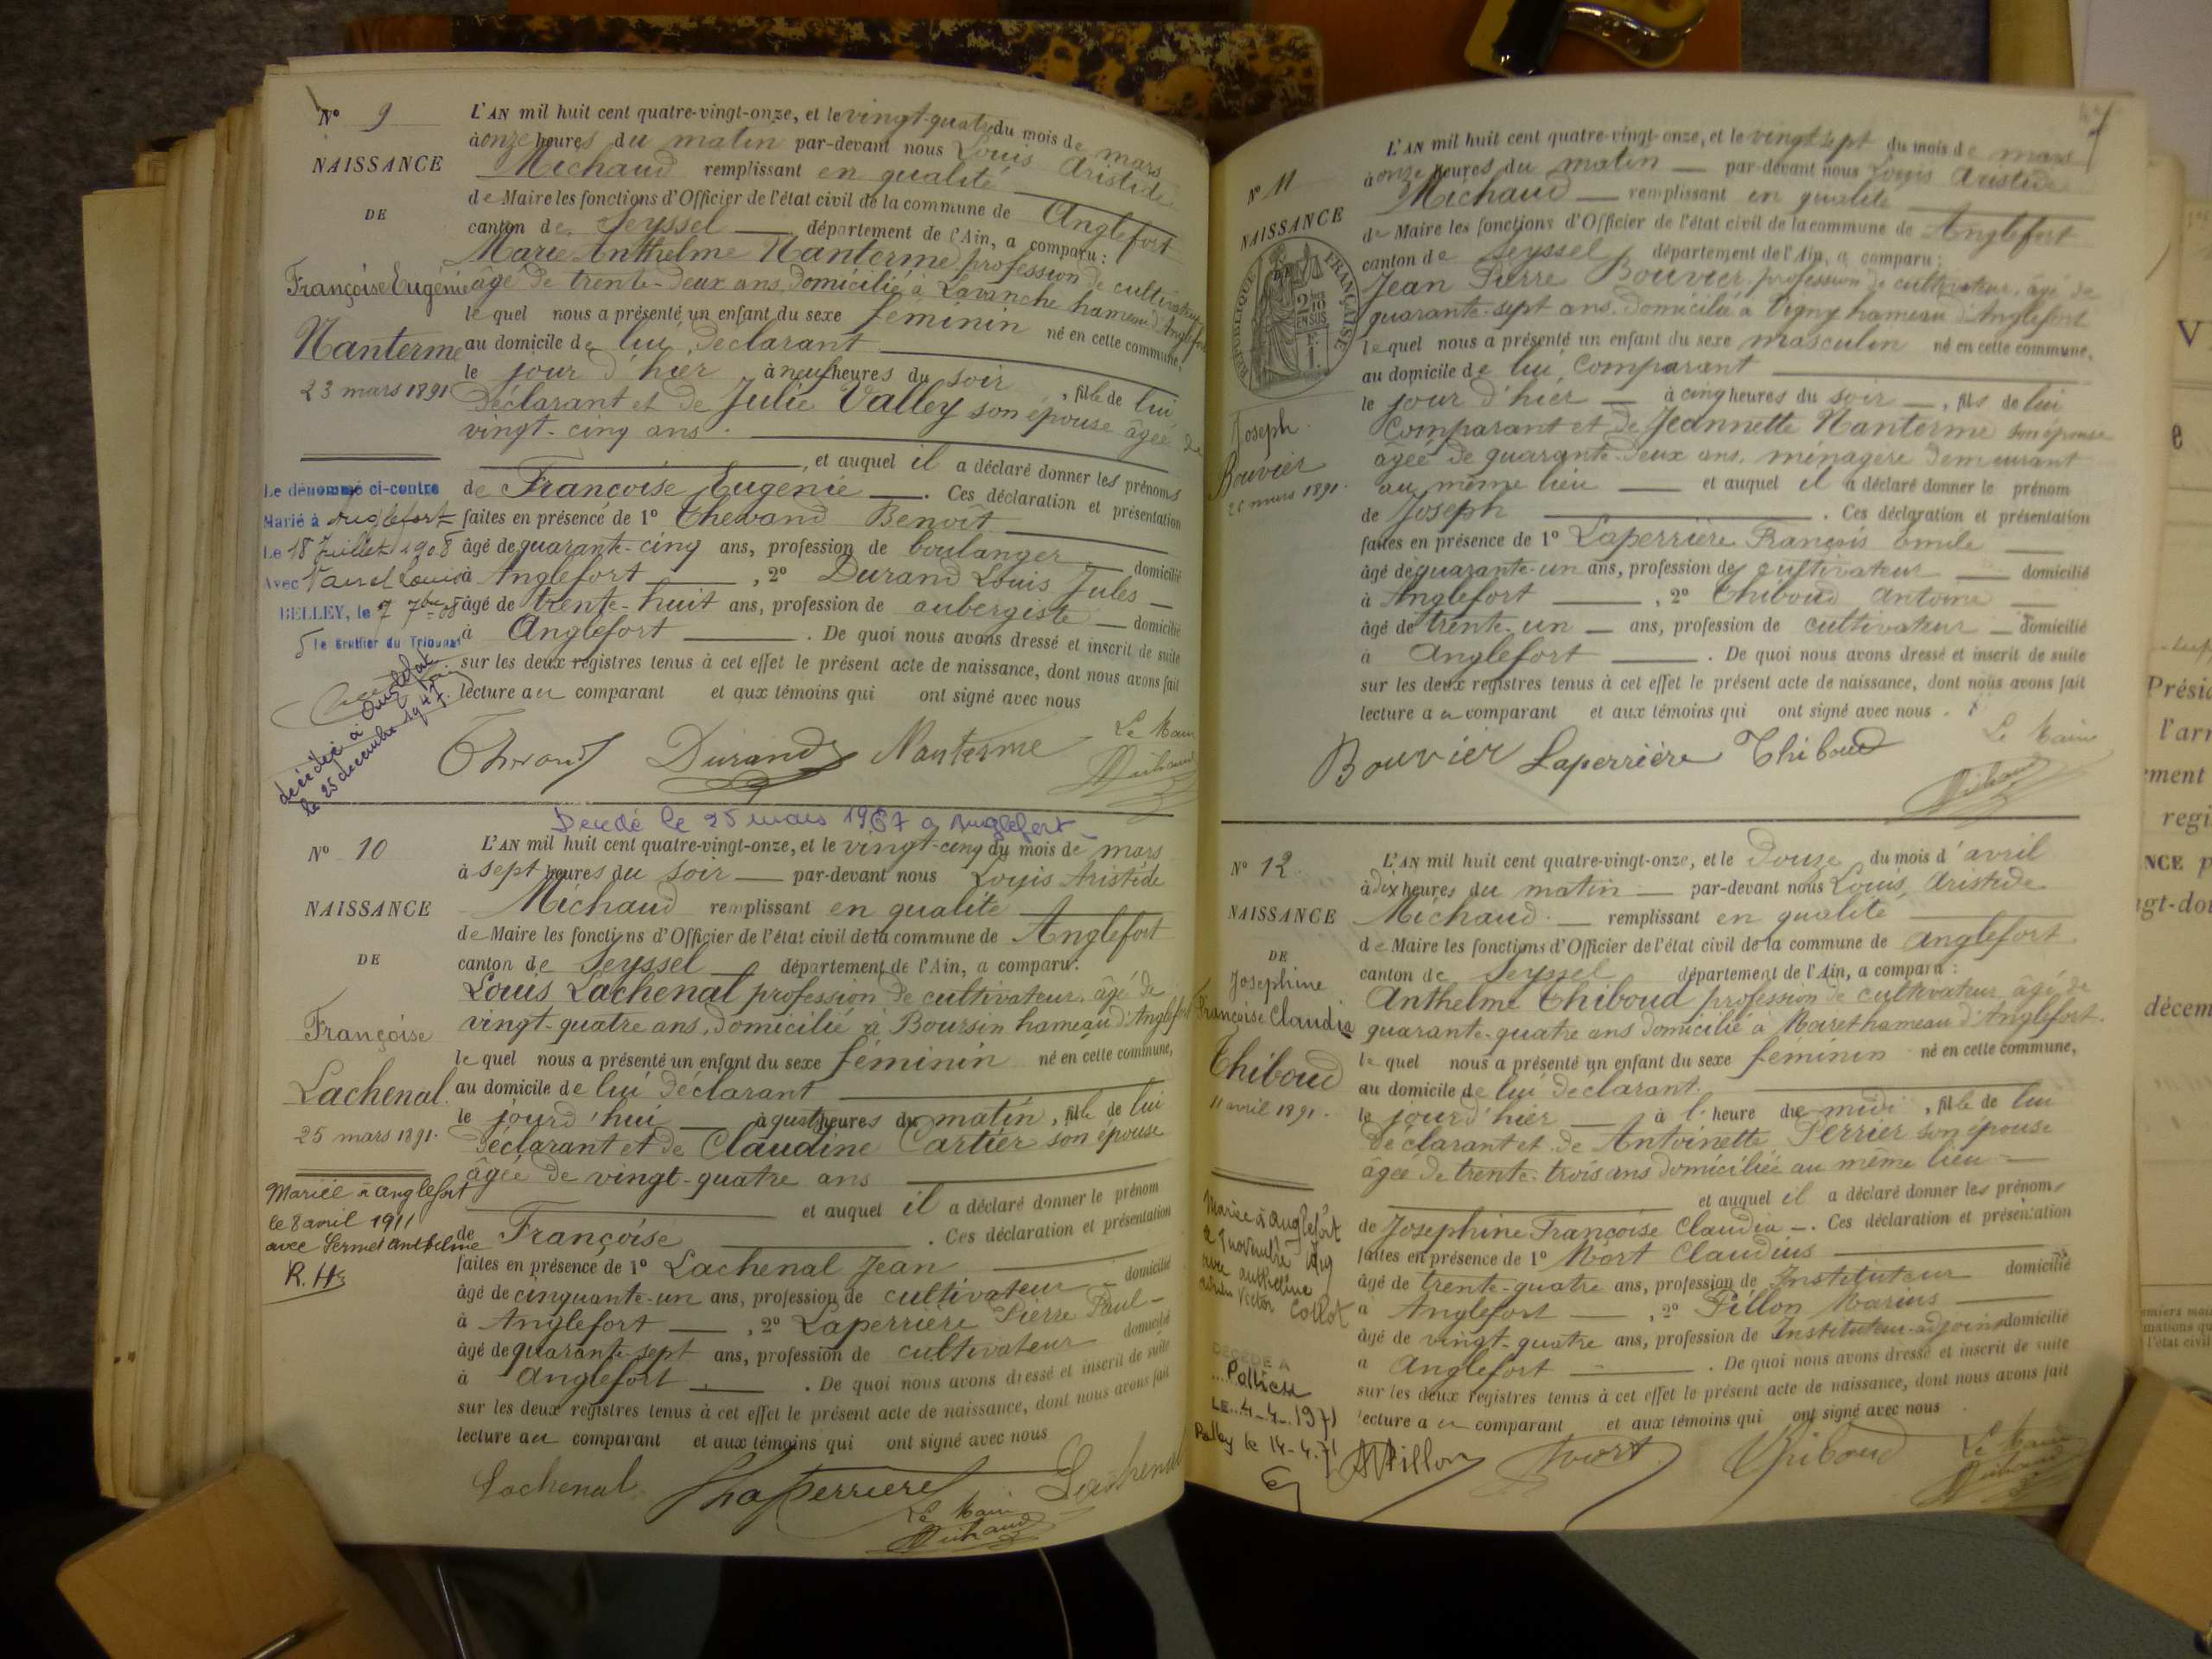 N° 9
NAISSANCE
DE
Françoise Eugénie
Nanterme
23 mars 1891
L'AN mil huit cent quatre-vingt-onze, et le vingt-quatre du mois de mars
à onze heures du matin par-devant nous Louis Aristide
Michaud remplissant en qualité
de Maire les fonctions d'Officier de l'état civil de la commune de Anglefort
canton de Seyssel département de l'Ain, a comparu :
Marie Anthelme Nanterme profession de cultivateur
âgé de trente-deux ans, domicilié à Lavanche hameau d'Anglefort
le quel nous a présenté un enfant du sexe féminin né en cette commune,
au domicile de lui, déclarant
le jour d'hier à neuf heures du soir, fille de lui
déclarant et de Julie Valley son épouse âgée de
vingt-cinq ans.
, et auquel il a déclaré donner les prénoms
de Françoise Eugénie. Ces déclaration et présentation
faites en présence de 1° Thevand Benoît
âgé de quarante-cinq ans, profession de boulanger domicilié
à Anglefort, 2° Durand Louis Jules
âgé de trente-huit ans, profession de aubergiste domicilié
à Anglefort. De quoi nous avons dressé et inscrit de suite
sur les deux registres tenus à cet effet le présent acte de naissance, dont nous avons fait
lecture au comparant et aux témoins qui ont signé avec nous
Le dénommé ci-contre
Marié à Anglefort
Le 18 Juillet 1908
Avec Louis
BELLEY, le 7 7bre 08
Le Greffier du Tribunal
décédée à Anglefort
le 25 decembre 1947
Durand Nanterme Le Maire
Michaud
Décédé le 25 mars 1967 a Anglefort
N° 10
NAISSANCE
DE
Françoise
Lachenal.
25 mars 1891.
L'AN mil huit cent quatre-vingt-onze, et le vingt-cinq du mois de mars
à sept heures du soir par-devant nous Louis Aristide
Michaud remplissant en qualité
de Maire les fonctions d'Officier de l'état civil de la commune de Anglefort
canton de Seyssel département de l'Ain, a comparu :
Louis Lachenal profession de cultivateur, âgé de
vingt-quatre ans, domicilié à Boursin hameau d'Anglefort
le quel nous a présenté un enfant du sexe féminin né en cette commune,
au domicile de lui déclarant
le jourd'hui à quatre heures du matin, fille de lui
déclarant et de Claudine Cartier son épouse
âgée de vingt-quatre ans
et auquel il a déclaré donner le prénom
de Françoise. Ces déclaration et présentation
faites en présence de 1° Lachenal Jean
âgé de cinquante-un ans, profession de cultivateur domicilié
à Anglefort, 2° Laperrière Pierre Paul
âgé de quarante-sept ans, profession de cultivateur domicilié
à Anglefort. De quoi nous avons dressé et inscrit de suite
sur les deux registres tenus à cet effet le présent acte de naissance, dont nous avons fait
lecture au comparant et aux témoins qui ont signé avec nous
Mariée à Anglefort
le 8 avril 1911
avec Sermet Anthelme
Lachenal Laperriere Lachenal
Le Maire
Michaud
N° 11
NAISSANCE
DE
RÉPUBLIQUE FRANÇAISE
2/10
EN SUS
Joseph
Bouvier
26 mars 1891.
L'AN mil huit cent quatre-vingt-onze, et le vingt sept du mois de mars
à onze heures du matin par-devant nous Louis Aristide
Michaud remplissant en qualité
de Maire les fonctions d'Officier de l'état civil de la commune de Anglefort
canton de Seyssel, département de l'Ain, a comparu :
Jean Pierre Bouvier, profession de cultivateur, âgé de
quarante-sept ans, domicilié à Vigny hameau d'Anglefort
le quel nous a présenté un enfant du sexe masculin né en cette commune,
au domicile de lui, comparant
le jour d'hier à cinq heures du soir, fils de lui
comparant et de Jeannette Nanterme son épouse
âgée de quarante-deux ans, ménagère demeurant
au même lieu et auquel il a déclaré donner le prénom
de Joseph. Ces déclaration et présentation
faites en présence de 1° Laperrière François Emile
âgé de quarante-un ans, profession de cultivateur domicilié
à Anglefort, 2° Thiboud Antoine
âgé de trente-un ans, profession de cultivateur domicilié
à Anglefort. De quoi nous avons dressé et inscrit de suite
sur les deux registres tenus à cet effet le présent acte de naissance, dont nous avons fait
lecture au comparant et aux témoins qui ont signé avec nous.
Bouvier Laperrière Thiboud Le Maire
Michaud
N° 12
NAISSANCE
DE
Josephine
Françoise Claudia
Thiboud
11 avril 1891.
L'AN mil huit cent quatre-vingt-onze, et le douze du mois d'avril
à dix heures du matin par-devant nous Louis Aristide
Michaud. remplissant en qualité
de Maire les fonctions d'Officier de l'état civil de la commune de Anglefort
canton de Seyssel département de l'Ain, a comparu :
Anthelme Thiboud profession de cultivateur âgé de
quarante-quatre ans domicilié à Maret hameau d'Anglefort.
le quel nous a présenté un enfant du sexe féminin né en cette commune,
au domicile de lui déclarant.
le jourd'hier à l'heure de midi, fille de lui
déclarant et de Antoinette Perrier son épouse
âgée de trente-trois ans domiciliée au même lieu
et auquel il a déclaré donner les prénoms
de Josephine Françoise Claudia. Ces déclaration et présentation
faites en présence de 1° Mort Claudius
âgé de trente-quatre ans, profession de Instituteur domicilié
à Anglefort, 2° Pillon Marius
âgé de vingt-quatre ans, profession de Instituteur-adjoint domicilié
à Anglefort. De quoi nous avons dressé et inscrit de suite
sur les deux registres tenus à cet effet le présent acte de naissance, dont nous avons fait
lecture au comparant et aux témoins qui ont signé avec nous
Mariée à Anglefort
novembre 1919
avec Anthelme
Victor Collot
DÉCÉDÉ A
LE 4-4-1971
le 14-4-71
Pillon Mort Thiboud Le Maire
Michaud